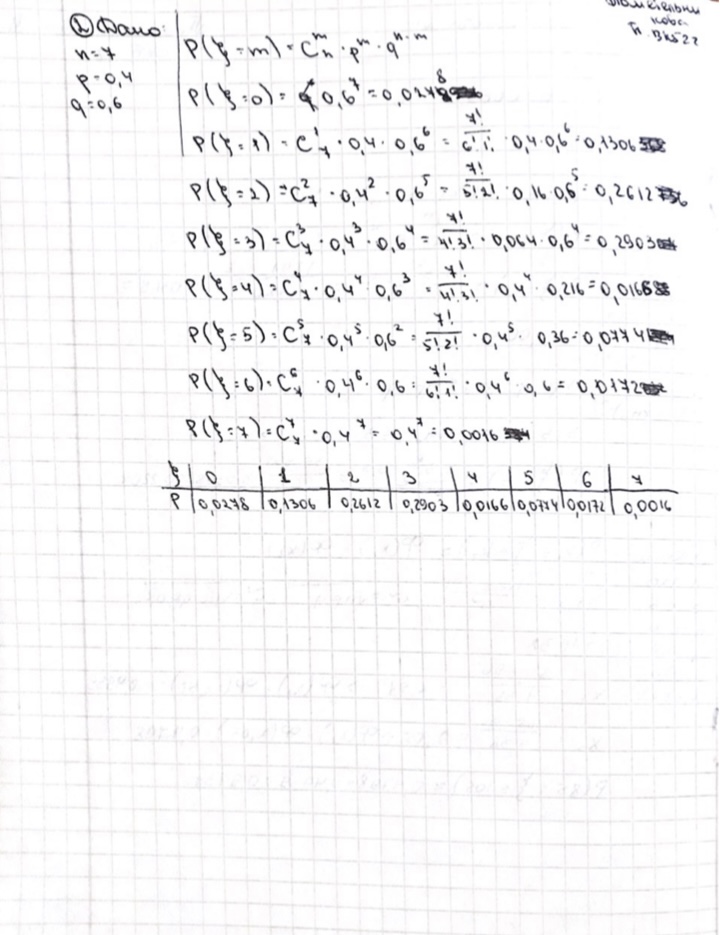 ① Дано:
n=7
p=0,4
q=0,6
P(ξ=m) = C_n^m · p^m · q^{n-m}
P(ξ=0) = 0,6^7 = 0,0278
P(ξ=1) = C_7^1 · 0,4 · 0,6^6 = 7!/(6!·1!) · 0,4·0,6^6 = 0,1306
P(ξ=2) = C_7^2 · 0,4^2 · 0,6^5 = 7!/(5!·2!) · 0,16·0,6^5 = 0,2612
P(ξ=3) = C_7^3 · 0,4^3 · 0,6^4 = 7!/(4!·3!) · 0,064·0,6^4 = 0,2903
P(ξ=4) = C_7^4 · 0,4^4 · 0,6^3 = 7!/(4!·3!) · 0,4^4 · 0,216 = 0,0166
P(ξ=5) = C_7^5 · 0,4^5 · 0,6^2 = 7!/(5!·2!) · 0,4^5 · 0,36 = 0,0774
P(ξ=6) = C_7^6 · 0,4^6 · 0,6 = 7!/(6!·1!) · 0,4^6 · 0,6 = 0,0172
P(ξ=7) = C_7^7 · 0,4^7 = 0,4^7 = 0,0016
ξ | 0 | 1 | 2 | 3 | 4 | 5 | 6 | 7
P | 0,0278 | 0,1306 | 0,2612 | 0,2903 | 0,0166 | 0,0774 | 0,0172 | 0,0016